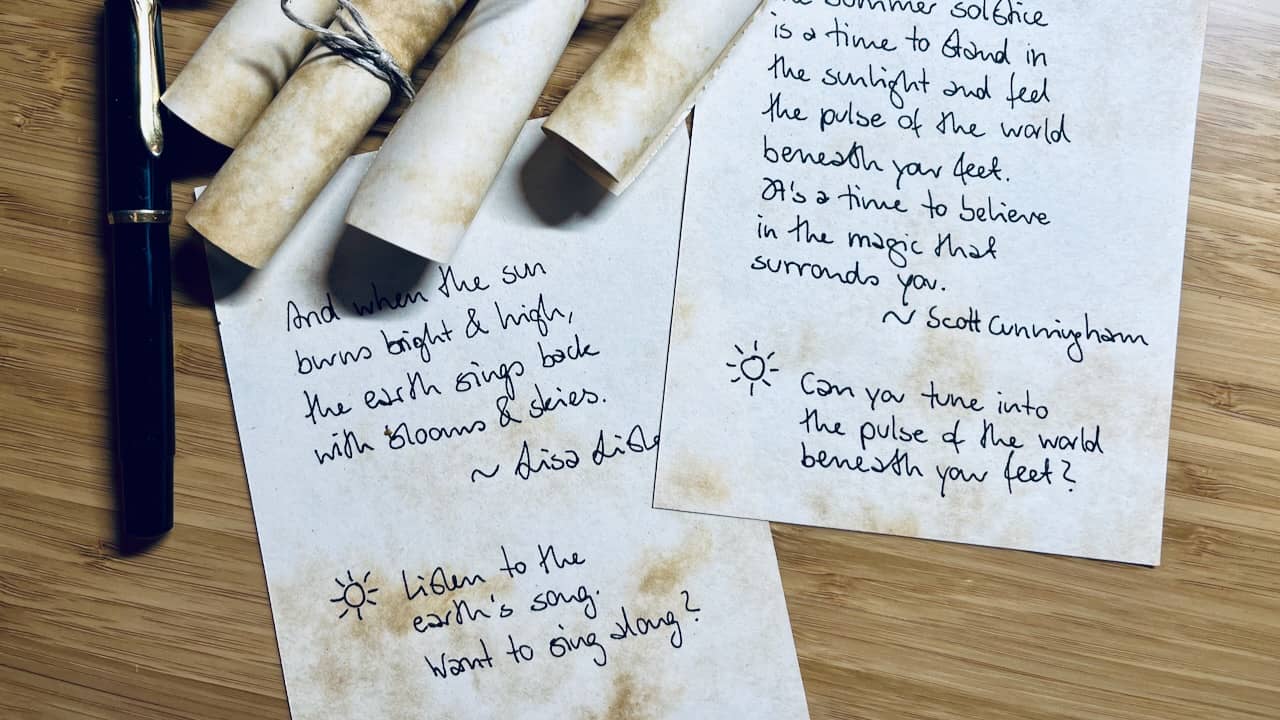 And when the sun
burns bright & high,
the earth sings back
with blooms & skies.
~ Lisa
Listen to the
earth's song.
Want to sing along?
summer solstice
is a time to stand in
the sunlight and feel
the pulse of the world
beneath your feet.
It's a time to believe
in the magic that
surronds you.
~ Scott Cunningham
Can you tune into
the pulse of the world
beneath your feet?